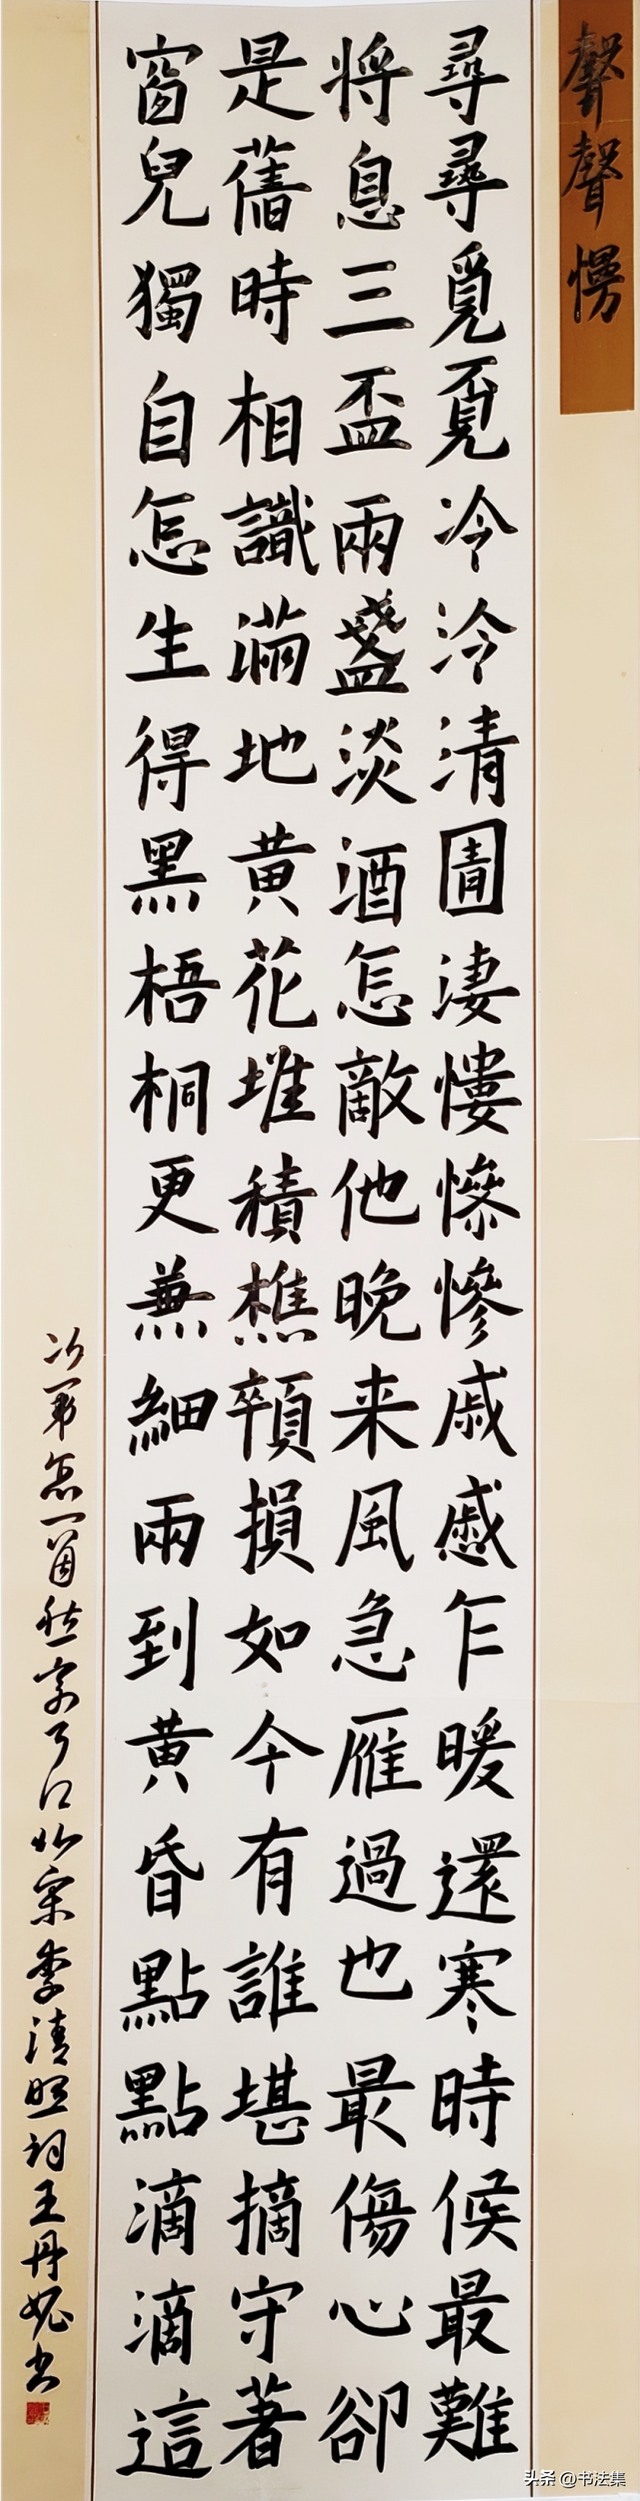 聲聲慢
尋尋覓覓冷冷清圊淒悽慘慘戚慼乍暖還寒時候最難
將息三盃兩盞淡酒怎敵他晚来風急雁過也最傷心卻
是舊時相識滿地黄花堆積樵顇損如今有誰堪摘守著
窗兒獨自怎生得黑梧桐更兼細雨到黄昏點點滴滴這
次第怎一箇愁字了得北宋李清照詞王丹妮书
头条 @书法集